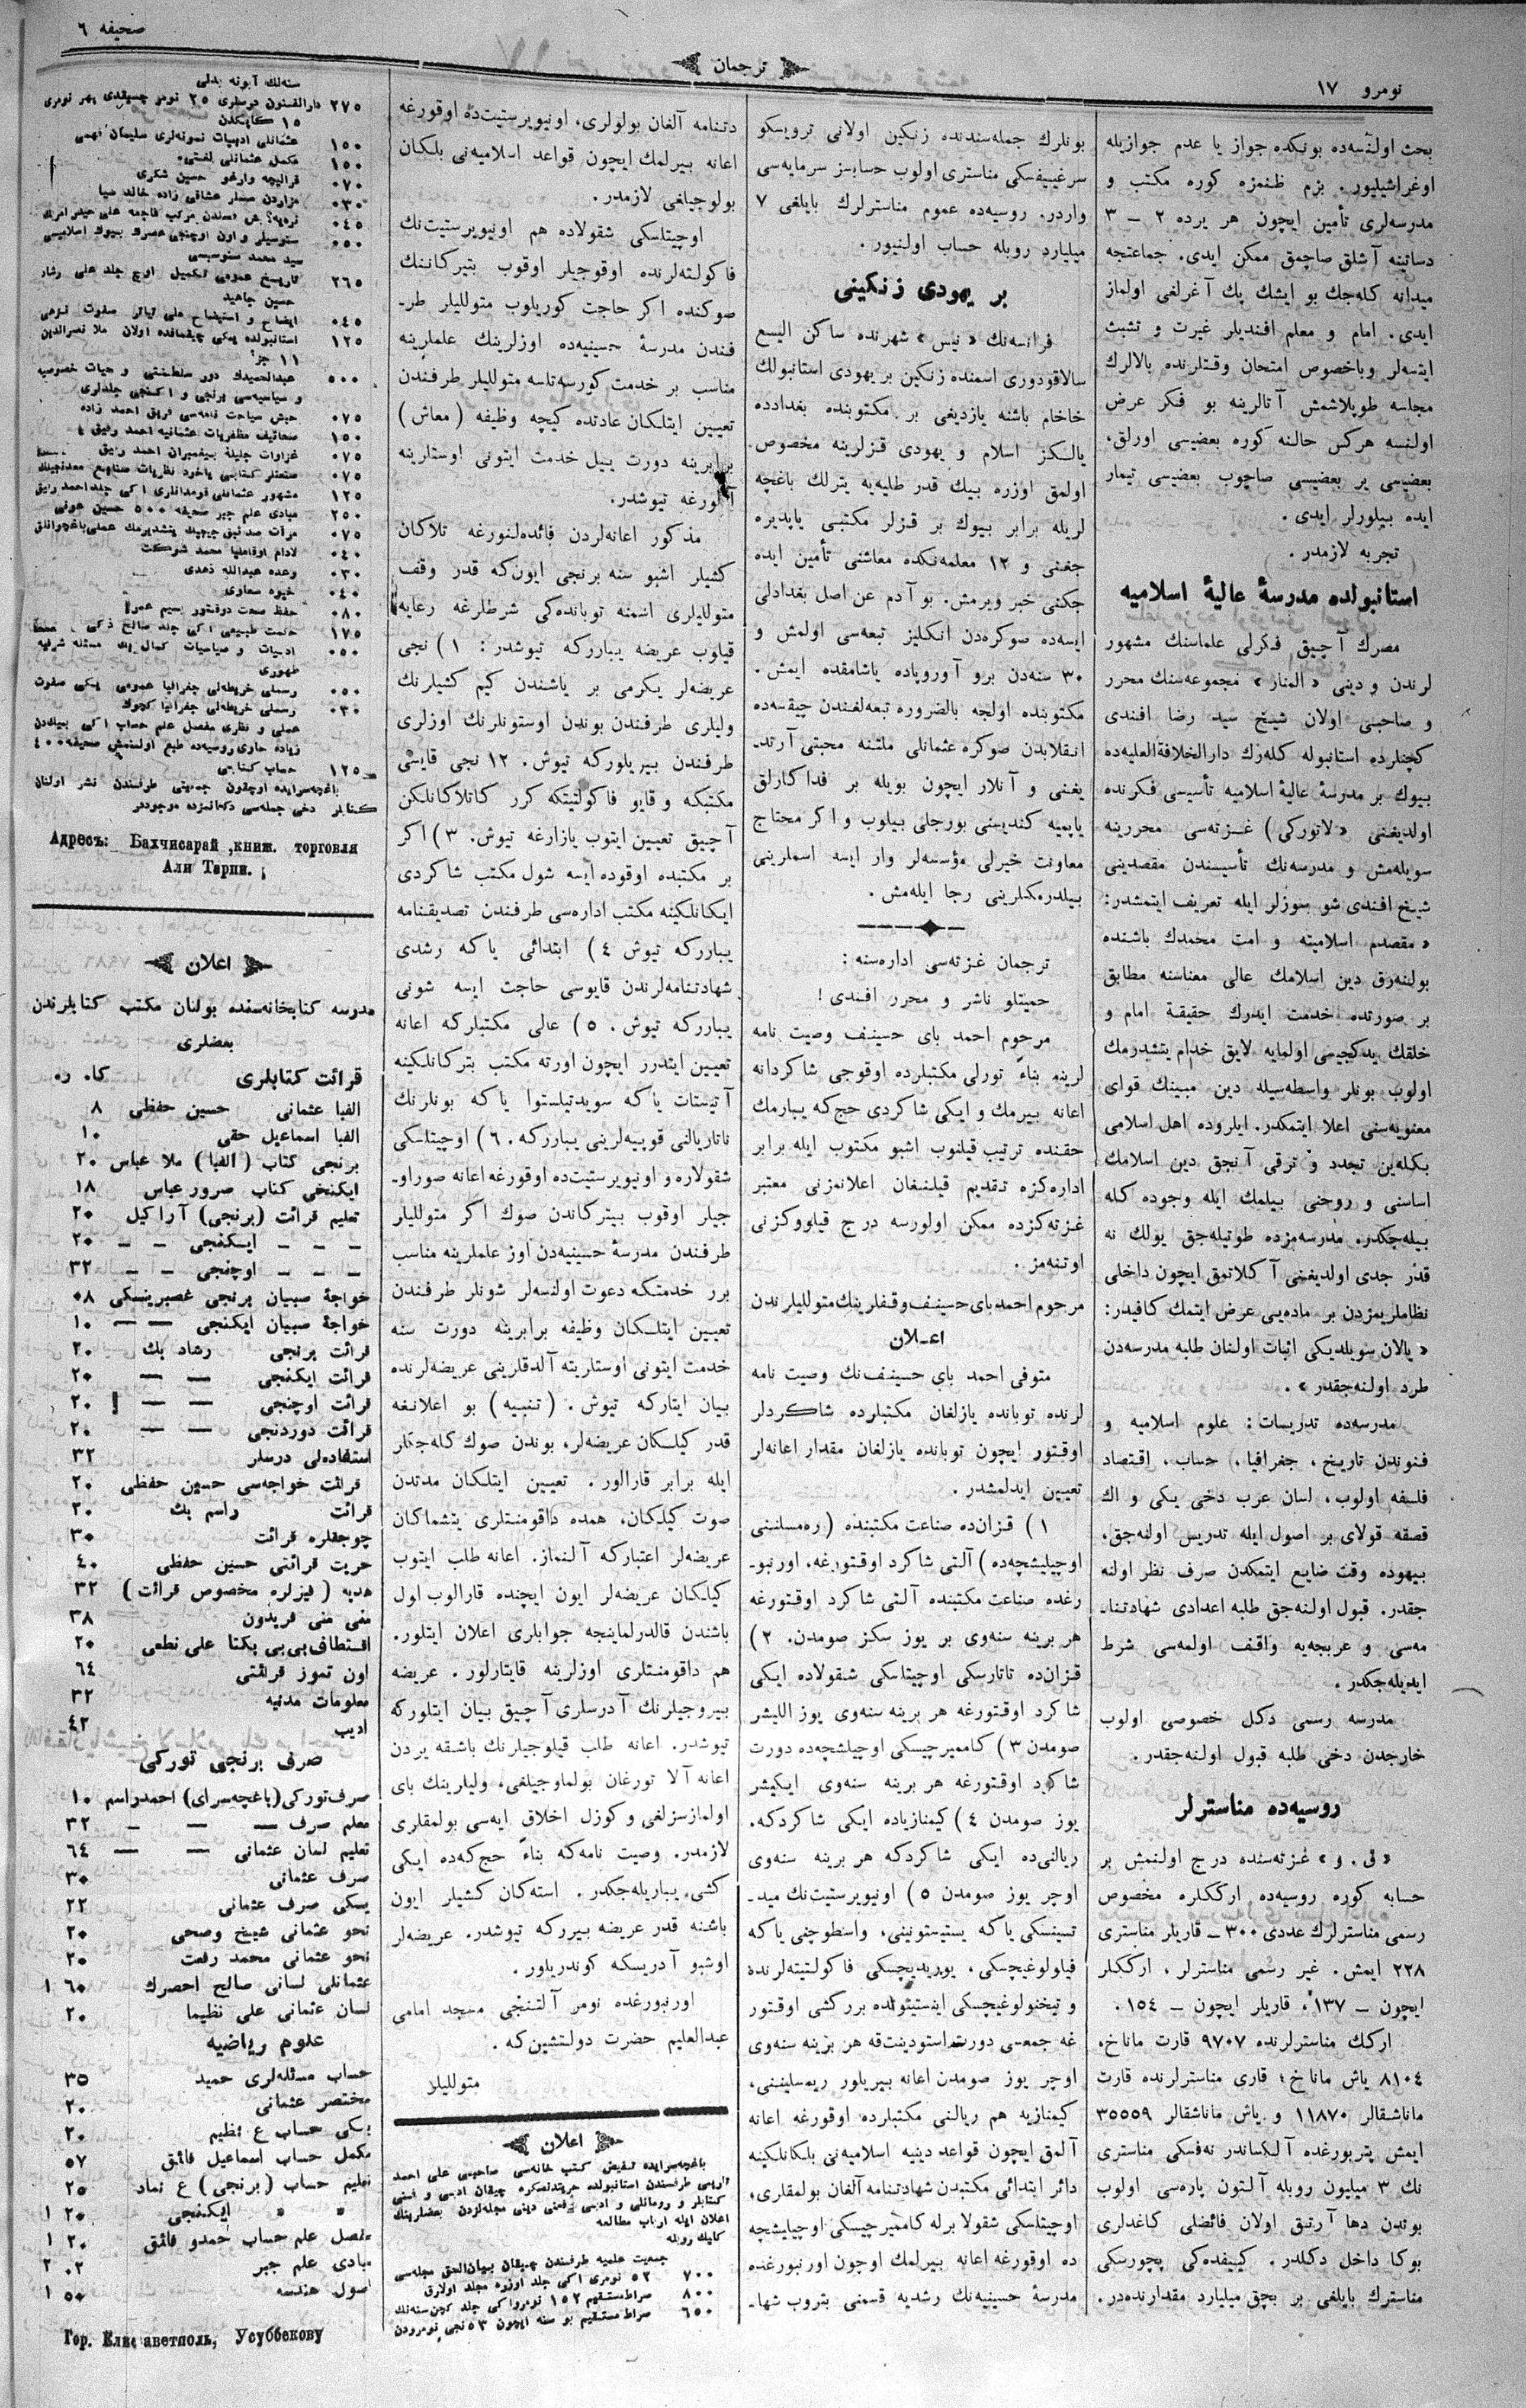 نومرو ١٧
ترجمان
صحيفه ٦
بحث اولنسه‌ده بونكده جواز يا عدم جوازيله
اوغراشيليور. بزم ظنمزه كوره مكتب و
مدرسه‌لرى تأمين ايچون هر يرده ٢ – ٣
دساتينه آشلق صاچمق ممكن ايدى. جماعتچه
ميدانه كله‌جك بو ايشك پك آغرلغى اولماز
ايدى. امام و معلم افنديلر غيرت و تشبث
ايتسه‌لر وباخصوص امتحان وقتلرنده بالالرك
مجلسه طوپلاشمش آتالرينه بو فكر عرض
اولنسه هركس حالنه كوره بعضيسى اورلق،
بعضيسى ير بعضيسى صاچوب بعضيسى تيمار
ايده بيلورلر ايدى.
تجربه لازمدر.
استانبولده مدرسهٔ عاليهٔ اسلاميه
مصرك آچيق فكرلى علماسنك مشهور
لرندن و دينى «المنار» مجموعه‌سنك محرر
و صاحبى اولان شيخ سيد رضا افندى
كچنلرده استانبوله كله‌رك دارالخلافة‌العليه‌ده
بيوك بر مدرسهٔ عاليهٔ اسلاميه تأسيسى فكرنده
اولديغنى «لاتوركى» غزته‌سى محررينه
سويله‌مش و مدرسه‌نك تأسيسندن مقصدينى
شيخ افندى شو سوزلر ايله تعريف ايتمشدر:
«مقصدم اسلاميته و امت محمدك باشنده
بولنه‌رق دين اسلامك عالى معناسنه مطابق
بر صورتده خدمت ايدرك حقيقة امام و
خلقك يدكچيسى اولمايه لايق خدام يتشدرمك
اولوب بونلر واسطه‌سيله دين مبينك قواى
معنويه‌سنى اعلا ايتمكدر. ايلروده اهل اسلامى
بكله‌ين تجدد و ترقى آنجق دين اسلامك
اساسنى و روحنى بيلمك ايله وجوده كله
بيله‌جكدر. مدرسه‌مزده طوتيله‌جق يولك نه
قدر جدى اولديغنى آكلاتمق ايچون داخلى
نظاملريمزدن بر ماده‌يى عرض ايتمك كافيدر:
«يالان سويلديكى اثبات اولنان طلبه مدرسه‌دن
طرد اولنه‌جقدر».
مدرسه‌ده تدريسات: علوم اسلاميه و
فنوندن تاريخ، جغرافيا، حساب، اقتصاد
فلسفه اولوب، لسان عرب دخى يكى و اك
قصقه قولاى بر اصول ايله تدريس اولنه‌جق،
بيهوده وقت ضايع ايتمكدن صرف نظر اولنه
جقدر. قبول اولنه‌جق طلبه اعدادى شهادتنا–
مه‌سى و عربجه‌يه واقف اولمه‌سى شرط
ايديله‌جكدر.
مدرسه رسمى دكل خصوصى اولوب
خارجدن دخى طلبه قبول اولنه‌جقدر.
روسيه‌ده مناسترلر
«ق. و» غزته‌سنده درج اولنمش بر
حسابه كوره روسيه‌ده ارككلره مخصوص
رسمى مناسترلرك عددى ٣٠٠ – قاريلر مناسترى
٢٢٨ ايمش. غير رسمى مناسترلر، ارككلر
ايچون – ١٣٧، قاريلر ايچون – ١٥٤.
اركك مناسترلرنده ٩٧٠٧ قارت ماناخ،
٨١٠٤ ياش ماناخ؛ قارى مناسترلرنده قارت
ماناشقالر ١١٨٧٠ و ياش ماناشقالر ٣٥٥٥٩
ايمش پتربورغده آلكساندر نه‌فسكى مناسترى
نك ٣ ميليون روبله آلتون پاره‌سى اولوب
بوندن دها آرتيق اولان فائضلى كاغدلرى
بوكا داخل دكلدر. كييفده‌كى پچورسكى
مناسترك بايلغى بر بچق ميليارد مقدارنده‌در.
بونلرك جمله‌سندنده زنكين اولانى ترويسكو
سرغييفسكى مناسترى اولوب حسابسز سرمايه‌سى
واردر. روسيه‌ده عموم مناسترلرك بايلغى ٧
ميليارد روبله حساب اولنيور.
بر يهودى زنكينى
فرانسه‌نك «نيس» شهرنده ساكن اليسع
سالاقودورى اسمنده زنكين بر يهودى استانبولك
خاخام باشنه يازديغى بر مكتوبنده بغدادده
يالكز اسلام و يهودى قزلرينه مخصوص
اولمق اوزره بيك قدر طلبه‌يه يترلك باغچه
لريله برابر بيوك بر قزلر مكتبى ياپديره
جغنى و ١٢ معلمه‌نكده معاشنى تأمين ايده
جكنى خبر ويرمش. بو آدم عن اصل بغدادلى
ايسه‌ده صوكره‌دن انكليز تبعه‌سى اولمش و
٣٠ سنه‌دن برو آوروپاده ياشامقده ايمش.
مكتوبنده اولجه بالضروره تبعه‌لغندن چيقسه‌ده
انقلابدن صوكره عثمانلى ملتنه محبتى آرتد–
يغنى و آنلار ايچون بويله بر فداكارلق
ياپميه كنديسنى بورجلى بيلوب و اكر محتاج
معاونت خيرلى مؤسسه‌لر وار ايسه اسملرينى
بيلدرمكلرينى رجا ايله‌مش.
ترجمان غزته‌سى اداره‌سنه:
حميتلو ناشر و محرر افندى!
مرحوم احمد باى حسينيف وصيت نامه
لرينه بناءً تورلى مكتبلرده اوقوجى شاكردانه
اعانه بيرمك و ايكى شاكردى حج‌كه يبارمك
حقنده ترتيب قيلنوب اشبو مكتوب ايله برابر
اداره‌كزه تقديم قيلنغان اعلانمزنى معتبر
غزته‌كزده ممكن اولورسه درج قيلووكزنى
اوتنه‌مز.
مرحوم احمد باى حسينيف وقفلرينك متولليلرندن
اعـلان
متوفى احمد باى حسينيف‌نك وصيت نامه
لرنده توبانده يازلغان مكتبلرده شاكردلر
اوقتور ايچون توبانده يازلغان مقدار اعانه‌لر
تعيين ايدلمشدر.
١) قزان‌ده صناعت مكتبنده (ره‌مسلننى
اوچيليشچه‌ده) آلتى شاكرد اوقتورغه، اورنبو–
رغده صناعت مكتبنده آلتى شاكرد اوقتورغه
هر برينه سنه‌وى بر يوز سكز صومدن. ٢)
قزان‌ده تاتارسكى اوچيتلسكى شقولاده ايكى
شاكرد اوقتورغه هر برينه سنه‌وى يوز الليشر
صومدن ٣) كاممرچيسكى اوچيلشچه‌ده دورت
شاكرد اوقتورغه هر برينه سنه‌وى ايكيشر
يوز صومدن ٤) كيمنازياده ايكى شاكردكه،
ريالنى‌ده ايكى شاكردكه هر برينه سنه‌وى
اوچر يوز صومدن ٥) اونيويرستيت‌نك ميد–
تسينسكى ياكه يستيستوينى، واسطوچنى ياكه
فيلولوغيچسكى، يوريديچسكى فاكولتيته‌لرنده
و تيخنولوغيچسكى اينستيتوتده بررکشى اوقتور
غه جمعسى دورت استودينت‌قه هر برينه سنه‌وى
اوچر يوز صومدن اعانه بيريلور ريمسلينى،
كيمنازيه هم ريالنى مكتبلرده اوقورغه اعانه
آلمق ايچون قواعد دينيه اسلاميه‌نى بلكانلكينه
دائر ابتدائى مكتبدن شهادتنامه آلغان بولمقلرى،
اوچيتلسكى شقولا برله كاممرچيسكى اوچيليشچه
ده اوقورغه اعانه بيرلمك اوچون اورنبورغده
مدرسهٔ حسينيه‌نك رشديه قسمنى بتروب شها–
دتنامه آلغان بولولرى، اونيويرستيت‌ده اوقورغه
اعانه بيرلمك ايچون قواعد اسلاميه‌نى بلكان
بولوجيلغى لازمدر.
اوچيتلسكى شقولاده هم اونيويرستيت‌نك
فاكولته‌لرنده اوقوجيلر اوقوب بتيركاننك
صوكنده اكر حاجت كوريلوب متولليلر طر–
فندن مدرسهٔ حسينيه‌ده اوزلرينك علملرينه
مناسب بر خدمت كورسه‌تلسه متولليلر طرفندن
تعيين ايتلكان عادتده كيچه وظيفه (معاش)
برابرينه دورت ييل خدمت ايتونى اوستلرينه
آلورغه تيوشدر.
مذكور اعانه‌لردن فائده‌لنورغه تلاكان
كشيلر اشبو سنه برنجى ايون‌كه قدر وقف
متولليلرى اسمنه توبانده‌كى شرطلرغه رعايه
قيلوب عريضه يباررکه تيوشدر: ١) نجى
عريضه‌لر يكرمى بر ياشندن كيم كشيلرنك
وليلرى طرفندن بوندن اوستونلرنك اوزلرى
طرفندن بيريلورکه تيوش. ١٢ نجى قايسى
مكتبكه و قايو فاكولتيتكه كرر كاتلاكانلكن
آچيق تعيين ايتوب يازارغه تيوش. ٣) اكر
بر مكتبده اوقوده ايسه شول مكتب شاكردى
ايكانلكينه مكتب اداره‌سى طرفندن تصديقنامه
يبارركه تيوش ٤) ابتدائى ياكه رشدى
شهادتنامه‌لرندن قايوسى حاجت ايسه شونى
يبارركه تيوش. ٥) عالى مكتبلركه اعانه
تعيين ايتدرر ايچون اورته مكتب بتركانلكينه
آتيستات ياكه سويدتيلستوا ياكه بونلرنك
ناتاريالنى قوپيه‌لرينى يبارركه. ٦) اوچيتلسكى
شقولاره و اونيويرستيت‌ده اوقورغه اعانه صوراو–
جيلر اوقوب بيتركاندن صوك اكر متولليلر
طرفندن مدرسهٔ حسينيه‌دن اوز علملرينه مناسب
برر خدمتكه دعوت اولنسه‌لر شونلر طرفندن
تعيين ايتلكان وظيفه برابرينه دورت سنه
خدمت ايتونى اوستلرينه آلدقلرينى عريضه‌لرنده
بيان ايتاركه تيوش. (تنبيه) بو اعلانغه
قدر كيلكان عريضه‌لر، بوندن صوك كله‌جكلر
ايله برابر قارالور. تعيين ايتلكان مدتدن
صوت كيلكان، همده داقومنتلرى يتشماكان
عريضه‌لر اعتباركه آلنماز. اعانه طلب ايتوب
كيلكان عريضه‌لر ايون ايچنده قارالوب اول
باشندن قالدرلماينجه جوابلرى اعلان ايتلور.
هم داقومنتلرى اوزلرينه قايتارلور. عريضه
بيروجيلرنك آدرسلرى آچيق بيان ايتلوركه
تيوشدر. اعانه طلب قيلوجيلرنك باشقه يردن
اعانه آلا تورغان بولماوجيلغى، وليلرينك باى
اولمازسزلغى و كوزل اخلاق ايه‌سى بولمقلرى
لازمدر. وصيت نامه‌كه بناءً حج‌كه‌ده ايكى
كشى، يباريله‌جكدر. استه‌كان كشيلر ايون
باشنه قدر عريضه بيررکه تيوشدر. عريضه‌لر
اوشبو آدريسكه كوندريلور.
اورنبورغده نومر آلتنچى مسجد امامى
عبدالعليم حضرت دولتشين‌كه.
متولليلر
اعلان
باغچه‌سرايده تفيض كتب خانه‌سى صاحبى على احمد
تارپى طرفندن استانبولده حريتدنصكره چيقان ادبى و فنى
كتابلر و رومانلى و ادبى فنى دينى مجله‌لردن بعضلرينك
اعلان ايله ارباب مطالعه
كاپك روبله
جمعيت علميه طرفندن چيقان بيان‌الحق مجله‌سى
٧٠٠ ٥٢ نومرى ايكى جلد اوزره مجلد اولارق
٨٠٠ صراط مستقيم ١٥٢ نومرو ايكى جلد كچن سنه‌نك
٦٥٠ صراط مستقيم بو سنه ايچون ٥٣ نجى نومرودن
سنه‌لك آبونه بدلى
٢٧٥ دارالفنون درسلرى ٢٥ نومر چيقدى بهر نومرى
١٥ كاپكدن
١٥٠ عثمانلى ادبيات نمونه‌لرى سليمان فهمى
١٥٠ مكمل عثمانلى لغتى
٠٧٠ قراليچه وارغو حسين شكرى
٠٣٠ مزاردن سسلر عشاقى زاده خالد ضيا
٠٥٠ سنوسيلر و اون اوچنجى عصرك بيوك اسلاميسى
سيد محمد سنوسيسى
٢٦٥ تاريخ عمومى تكميل اوچ جلد على رشاد
حسين جاهيد
١٢٥ استانبولده يكى چيقمافده اولان ملا نصرالدين
١١ جز
٥٠٠ عبدالحميدك دور سلطنتى و حيات خصوصيه
و سياسيه‌سى برنجى و ايكنجى جلدلرى
٠٧٥ حبش سياحت نامه‌سى فريق احمد زاده
١٥٠ صحائيف مظفريات عثمانيه احمد رفيق
٠٧٥ غزاوات جليلهٔ پيغمبران احمد رفيق
١٢٥ مشهور عثمانلى قومندانلرى ايكى جلد احمد رفيق
٢٥٠ مبادى علم جبر صحيفه ٥٠٠ حسين عونى
٠٣٠ وعده عبدالله زهدى
٠٤٠ خيوه سعاوى
٠٨٠ حفظ صحت دوقتور بسيم عمر
١٧٥ حكمت طبيعى ايكى جلد صالح ذكى
٠٥٠ ادبيات و سياسيات كمال بك مسئله شرقيه
ظهورى
٠٥٠ رسملى خريطه‌لى جغرافيا عمومى يكى صفوت
٠٣٠ رسملى خريطه‌لى جغرافيا كچوك
عملى و نظرى مفصل علم حساب ايكى بيكدن
زياده حاوى روسيه‌ده طبع اولنمش صحيفه ٤٠٠
١٢٥ حساب كتابى
باغچه‌سرايده اوچقون جمعيتى طرفندن نشر اولنان
كتابلر دخى جمله‌سى دكانمزده موجوددر
Адресъ: Бахчисарай, книж. торговля
Али Тарпи.
اعلان
مدرسه كتابخانه‌سنده بولنان مكتب كتابلرندن
بعضلرى
قرائت كتابلرى كاپ. ر.
الفبا عثمانى حسين حفظى ٨
الفبا اسماعيل حقى ١٠
برنجى كتاب (الفبا) ملا عباس ٢٠
ايكنجى كتاب صرور عباس ١٨
تعليم قرائت (برنجى) آراكيل ٢٠
– – – ايكنجى – – ٢٠
– – – اوچنجى – – ٣٢
خواجهٔ صبيان برنجى غصبرينسكى ٠٨
خواجهٔ صبيان ايكنجى — — ١٠
قرائت برنجى رشاد بك ٢٠
قرائت ايكنجى — — ٢٠
قرائت اوچنجى — — ٢٠
قرائت دوردنجى — — ٢٠
استفاده‌لى درسلر ٣٢
قرائت خواجه‌سى حسين حفظى ٢٠
قرائت راسم بك ٢٠
چوجقلره قرائت ٣٠
حريت قرائتى حسين حفظى ٤٠
هديه (قيزلره مخصوص قرائت) ٣٢
منى منى فريدون ٣٨
اقتطاف بى بى يكتا على نطعى ٢٠
اون تموز قرائتى ٦٤
معلومات مدنيه ٣٢
اديب ٤٢
صرف برنجى توركى
صرف توركى (باغچه‌سراى) احمد راسم ١٠
معلم صرف — — – ٣٢
تعليم لسان عثمانى — — ٦٤
صرف عثمانى ٣٠
يكى صرف عثمانى ٢٢
نحو عثمانى شيخ وصحى ٢٠
نحو عثمانى محمد رفعت ٢٠
عثمانلى لسانى صالح احصرك ٦٠ ١
لسان عثمانى على نظيما ٢٠
علوم رياضيه
حساب مسئله‌لرى حميد ٣٥
مختصر عثمانى ٢٠
يكى حساب ع نظيم ٢٠
مكمل حساب اسماعيل فائق ٥٧
تعليم حساب (برنجى) ع نماد ٢٥
» » ايكنجى ٢٠ ١
مفصل علم حساب حمدو فائق ٢٠ ١
مبادى علم جبر ٠٢ ٢
اصول هندسه ٥٠ ١
Гор. Елисаветполь, Усуббекову